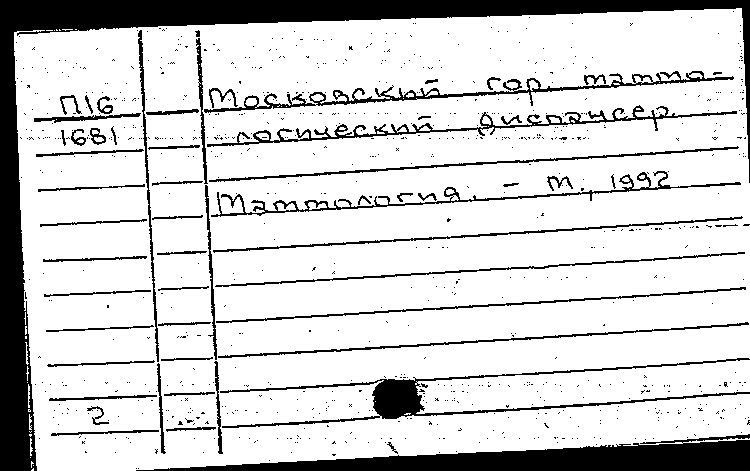 П16 Московский гор. маммо-
1681 логический диспансер.
Маммология. – М., 1992
2